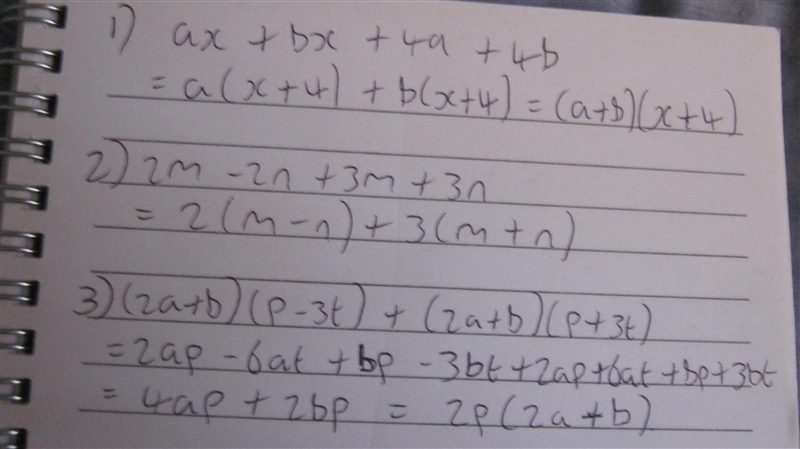 1) ax + bx + 4a + 4b
= a(x+4) + b(x+4) = (a+b)(x+4)
2) 2m - 2n + 3m + 3n
= 2(m-n) + 3(m+n)
3) (2a+b)(p-3t) + (2a+b)(p+3t)
= 2ap - 6at + bp - 3bt + 2ap + 6at + bp + 3bt
= 4ap + 2bp = 2p(2a+b)